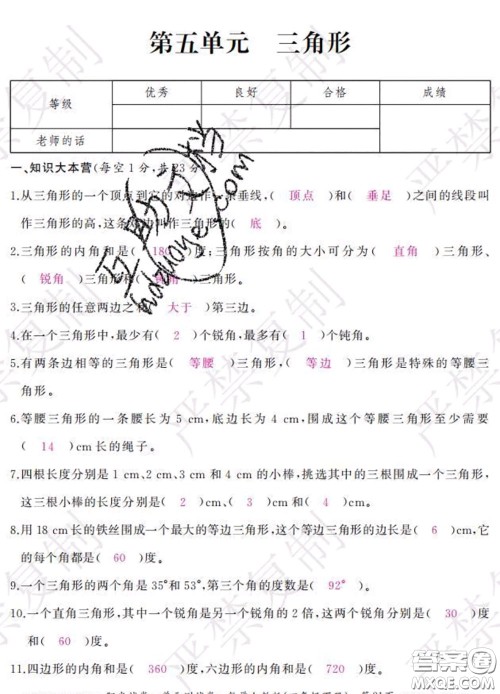 第五单元 三角形
等级 优秀 良好 合格 成绩
老师的话
一、知识大本营(每空1分,共23分)
1.从三角形的一个顶点到它的对边作一条垂线,( 顶点 )和( 垂足 )之间的线段叫
作三角形的高,这条对边叫作三角形的( 底 )。
2.三角形的内角和是( 180 )度;三角形按角的大小可分为( 直角 )三角形、
( 锐角 )三角形和( 钝角 )三角形。
3.三角形的任意两边之和( 大于 )第三边。
4.在一个三角形中,最少有( 2 )个锐角,最多有( 1 )个钝角。
5.有两条边相等的三角形是( 等腰 )三角形,( 等边 )三角形是特殊的等腰三
角形。
6.等腰三角形的一条腰长为5 cm,底边长为4 cm,围成这个三角形至少需要
( 14 )cm长的绳子。
7.四根长度分别是1 cm、2 cm、3 cm和4 cm的小棒,挑选其中的三根围成一个三角形,
这三根小棒的长度分别是( 2 )cm、( 3 )cm、( 4 )cm。
8.用18 cm长的铁丝围成一个最大的等边三角形,这个等边三角形的边长是( 6 )cm,它
的每个角都是( 60 )度。
9.一个三角形的两个角是35°和53°,第三个角的度数是( 92° )。
10.一个直角三角形,其中一个锐角是另一个锐角的2倍,这两个锐角分别是( 30 )度
和( 60 )度。
11.四边形的内角和是( 360 )度,六边形的内角和是( 720 )度。
严禁复制
答案圈
MXQE.COM